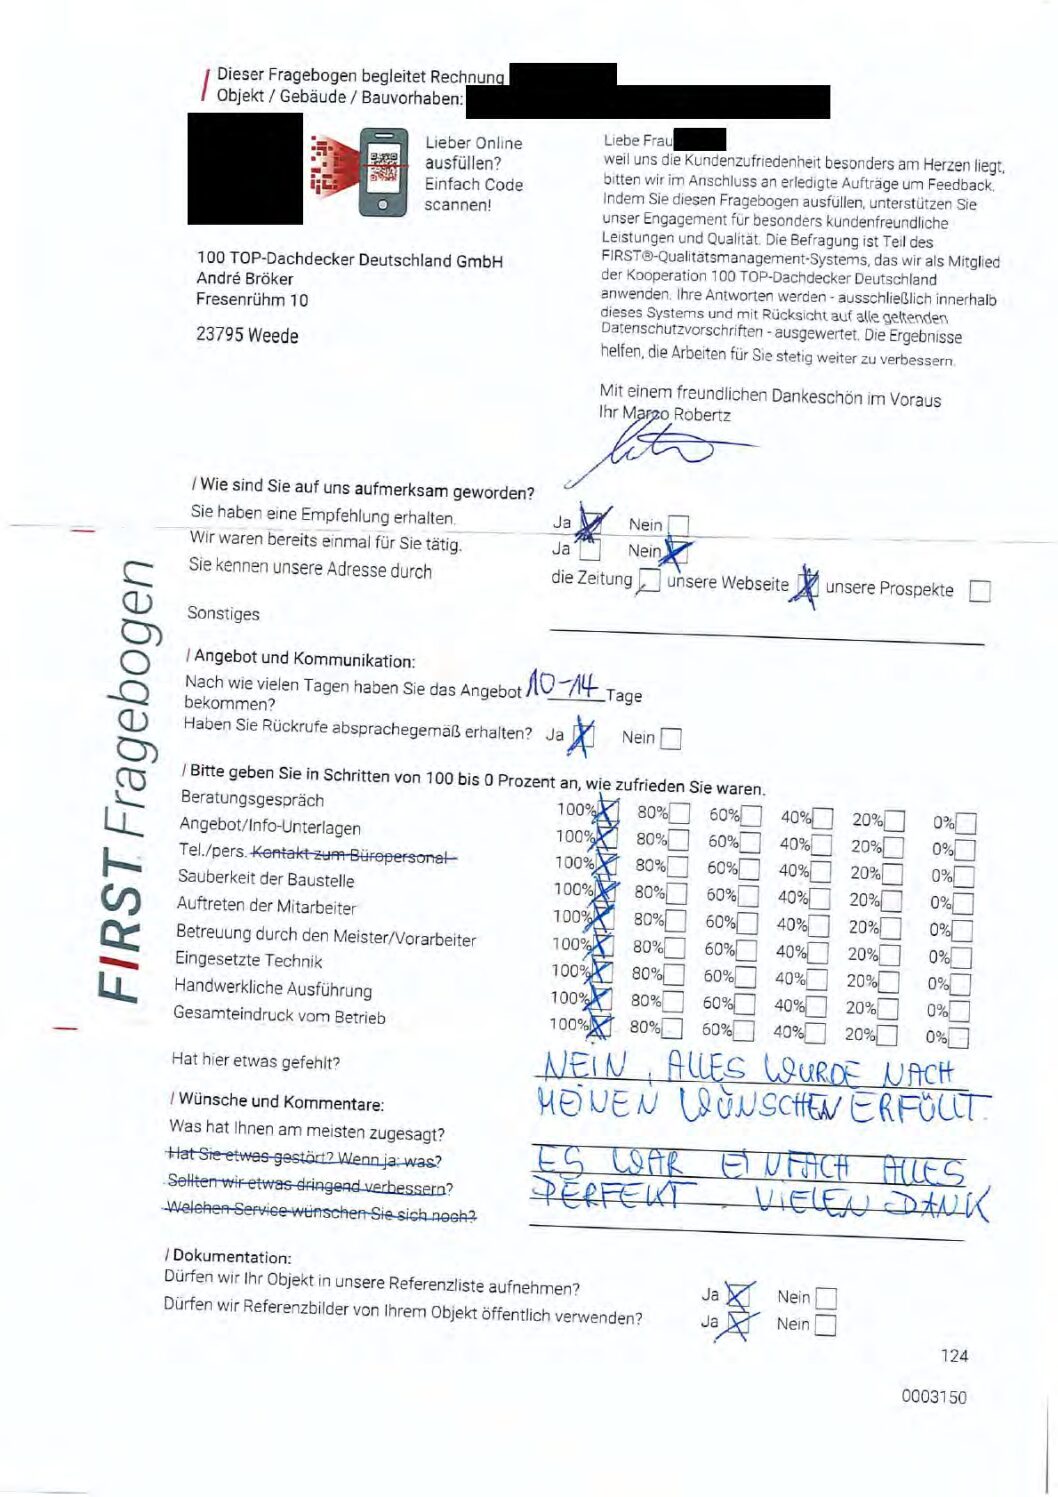 Dieser Fragebogen begleitet Rechnung
Objekt / Gebäude / Bauvorhaben:
Lieber Online
ausfüllen?
Einfach Code
scannen!
100 TOP-Dachdecker Deutschland GmbH
André Bröker
Fresenrühm 10
23795 Weede
Liebe Frau
weil uns die Kundenzufriedenheit besonders am Herzen liegt,
bitten wir im Anschluss an erledigte Aufträge um Feedback.
Indem Sie diesen Fragebogen ausfüllen, unterstützen Sie
unser Engagement für besonders kundenfreundliche
Leistungen und Qualität. Die Befragung ist Teil des
FIRST®-Qualitätsmanagement-Systems, das wir als Mitglied
der Kooperation 100 TOP-Dachdecker Deutschland
anwenden. Ihre Antworten werden - ausschließlich innerhalb
dieses Systems und mit Rücksicht auf alle geltenden
Datenschutzvorschriften - ausgewertet. Die Ergebnisse
helfen, die Arbeiten für Sie stetig weiter zu verbessern.
Mit einem freundlichen Dankeschön im Voraus
Ihr Marco Robertz
FIRST Fragebogen
/ Wie sind Sie auf uns aufmerksam geworden?
Sie haben eine Empfehlung erhalten. Ja Nein
Wir waren bereits einmal für Sie tätig. Ja Nein
Sie kennen unsere Adresse durch die Zeitung unsere Webseite unsere Prospekte
Sonstiges
/ Angebot und Kommunikation:
Nach wie vielen Tagen haben Sie das Angebot 10-14 Tage
bekommen?
Haben Sie Rückrufe absprachegemäß erhalten? Ja Nein
/ Bitte geben Sie in Schritten von 100 bis 0 Prozent an, wie zufrieden Sie waren.
Beratungsgespräch 100% 80% 60% 40% 20% 0%
Angebot/Info-Unterlagen 100% 80% 60% 40% 20% 0%
Tel./pers. Kontakt zum Büropersonal 100% 80% 60% 40% 20% 0%
Sauberkeit der Baustelle 100% 80% 60% 40% 20% 0%
Auftreten der Mitarbeiter 100% 80% 60% 40% 20% 0%
Betreuung durch den Meister/Vorarbeiter 100% 80% 60% 40% 20% 0%
Eingesetzte Technik 100% 80% 60% 40% 20% 0%
Handwerkliche Ausführung 100% 80% 60% 40% 20% 0%
Gesamteindruck vom Betrieb 100% 80% 60% 40% 20% 0%
Hat hier etwas gefehlt? NEIN, ALLES WURDE NACH
MEINEN WÜNSCHEN ERFÜLLT.
/ Wünsche und Kommentare:
Was hat Ihnen am meisten zugesagt?
Hat Sie etwas gestört? Wenn ja: was? ES WAR EINFACH ALLES
Sollten wir etwas dringend verbessern? PERFEKT. VIELEN DANK
Welchen Service wünschen Sie sich noch?
/ Dokumentation:
Dürfen wir Ihr Objekt in unsere Referenzliste aufnehmen? Ja Nein
Dürfen wir Referenzbilder von Ihrem Objekt öffentlich verwenden? Ja Nein
124
0003150